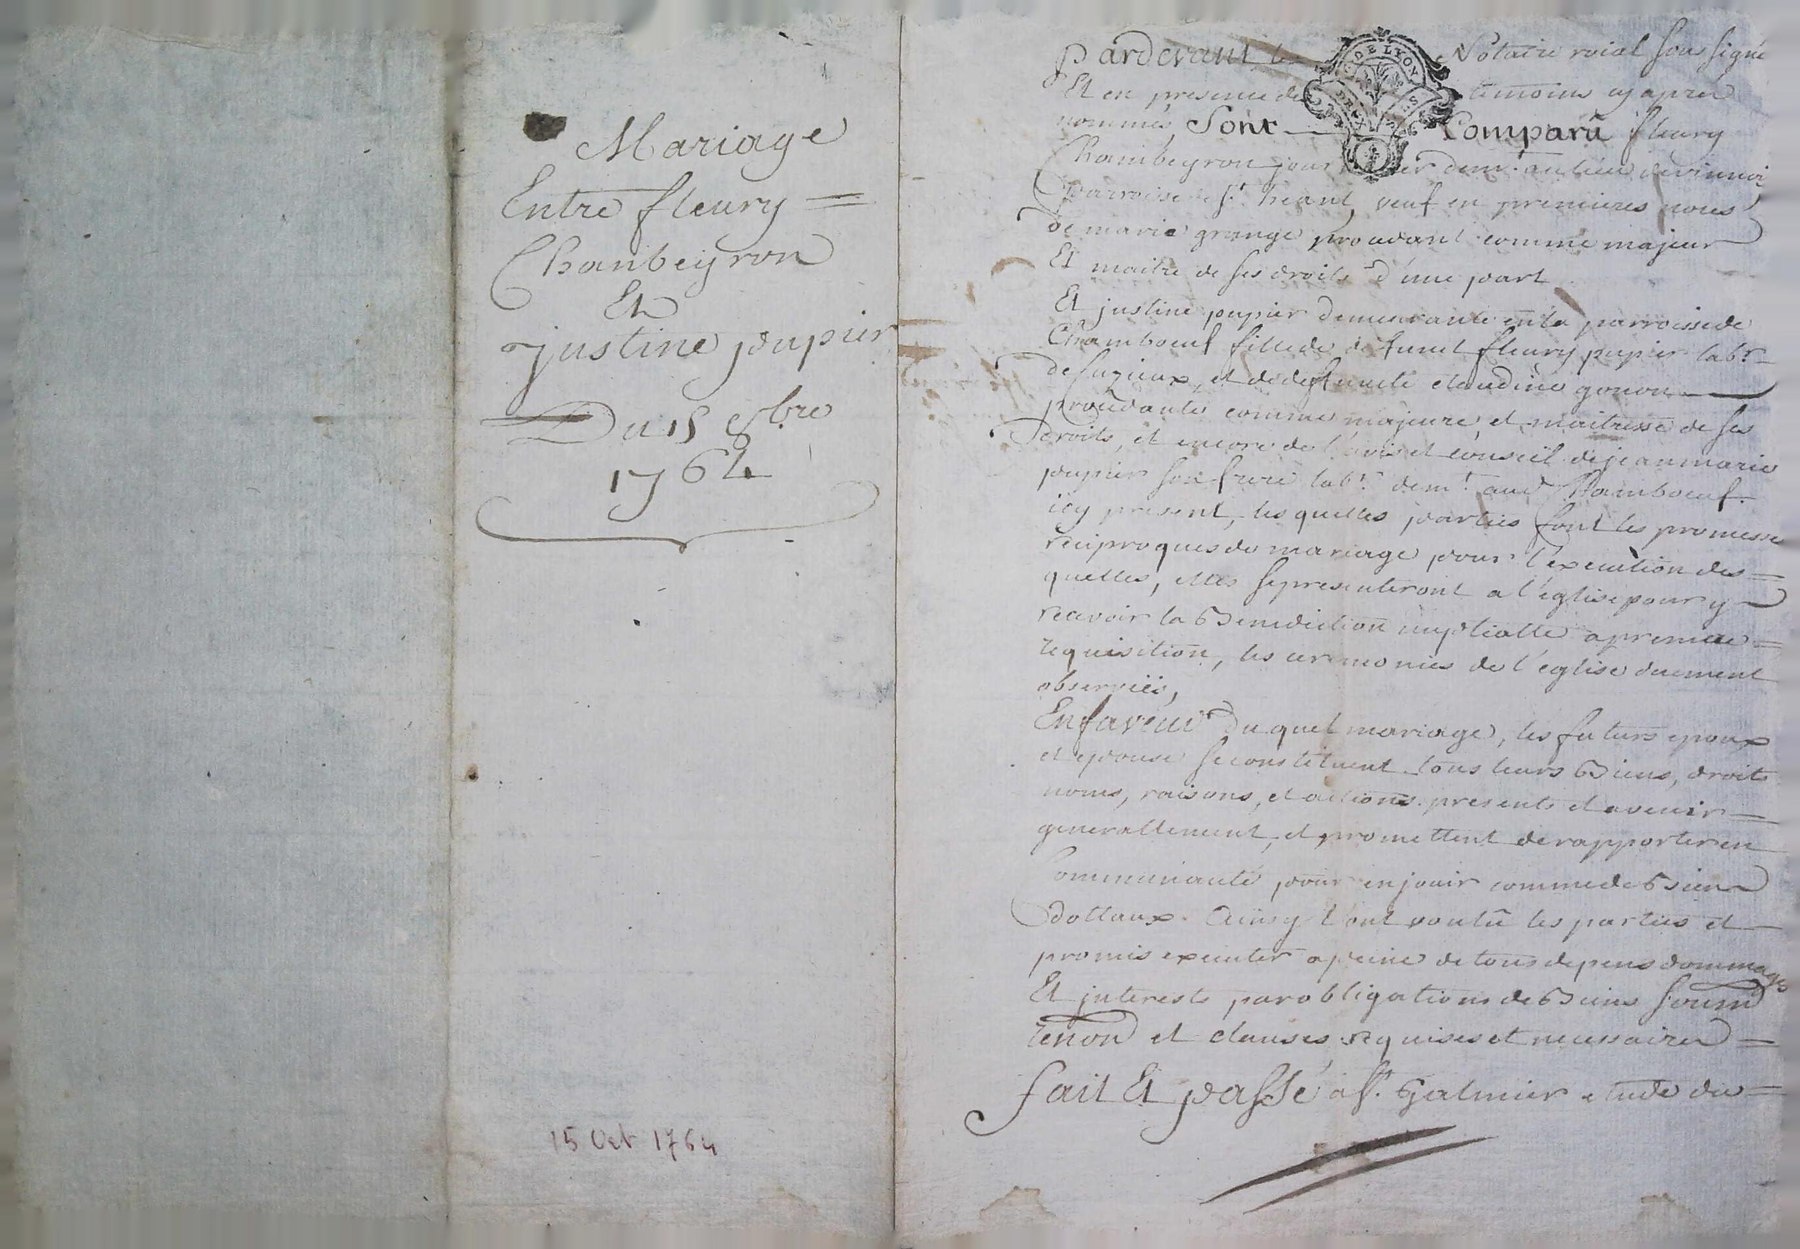 Mariage
Entre fleury =
Chanbeyron
Et
justine pupier
Du 15 8bre
1764
15 Oct 1764
G. DE LYON
DEUX SLS
Pardevant le Notaire roial sous signé
Et en presence des temoins cy apres
nommés, Sont Comparu fleury
Chambeyron demt. au lieu de
parroisse de st. heant, veuf en premieres noces
de marie grange procedant comme majeur
Et maitre de ses droits d'une part
Et justine pupier demeurante en la parroisse de
Chambœuf fille de defunct fleury pupier labr.
de Cuzieux, et de defuncte claudine gonon
procedante comme majeure, et maitresse de ses
droits, et encore de l'avis et conseil de jean marie
pupier son frere labr. demt. aud Chambœuf.
icy present, les quelles parties font les promesses
reciproques de mariage pour l'execution des =
quelles, elles se presenteront a l'église pour y
recevoir la Benediction nuptialle a premiere =
requisition, les ceremonies de l'église duement
observées,
En faveur du quel mariage, les futurs epoux
et epouse se constituent tous leurs Biens, droits
noms, raisons, et actions presents et avenir =
generallement, et promettent de rapporter en
Communauté pour en jouir comme de Biens
dottaux. Ainsy l'ont voulû les parties et
promis executer a peine de tous depens dommages
Et interests par obligations de Biens soumis
renon et clauses requises et necessaires =
fait Et passé a st. Galmier etude du =